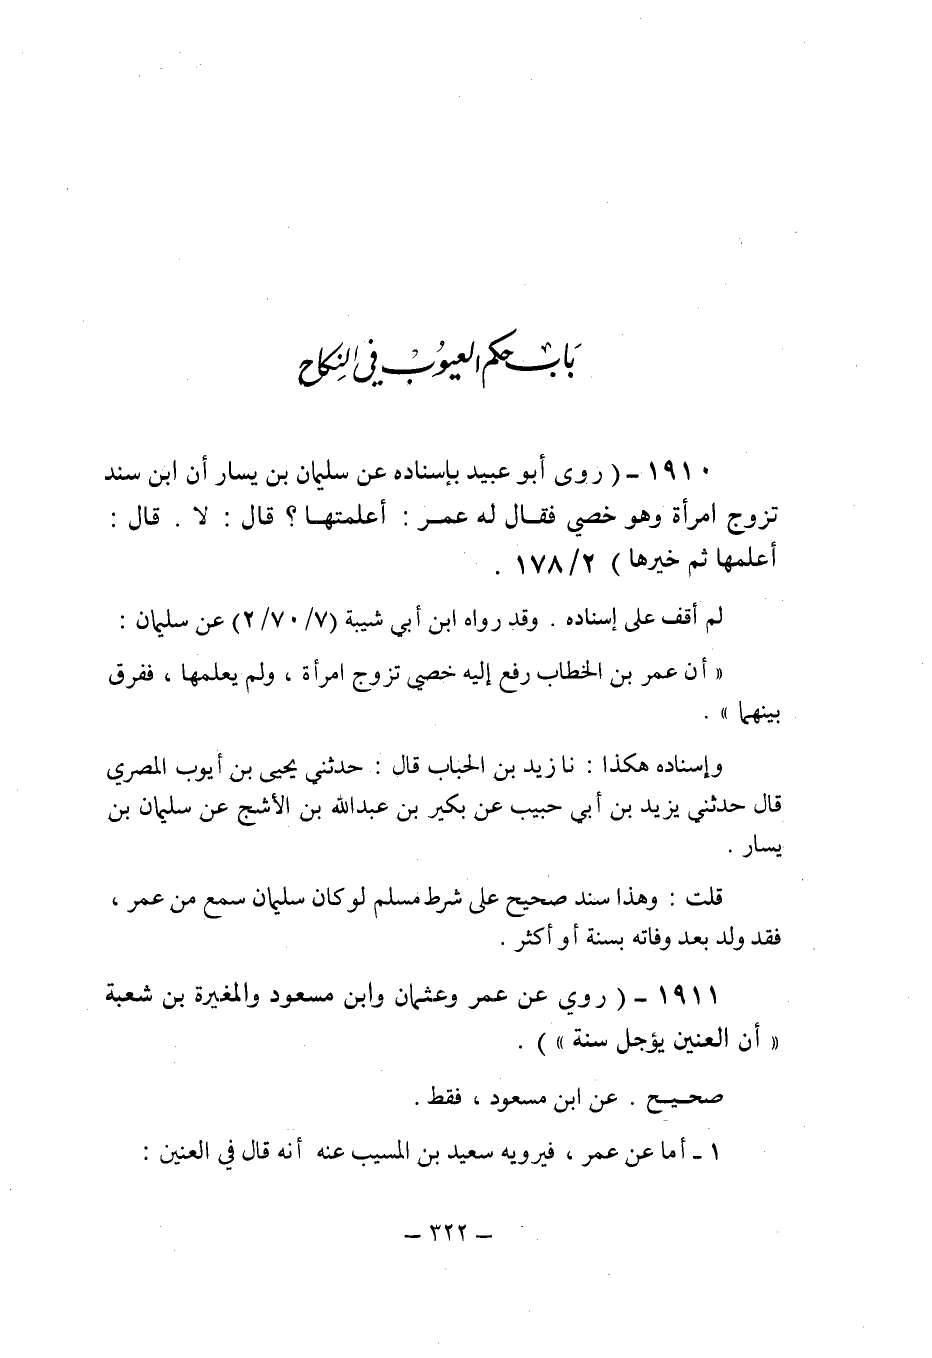 بَاب حكم العيُوبْ في النِكاح
١٩١٠ ـ ( روى أبو عبيد بإسناده عن سليمان بن يسار أن ابن سند
تزوج امرأة وهو خصي فقال له عمر : أعلمتها ؟ قال : لا . قال :
أعلمها ثم خيرها ) ١٧٨/٢ .
لم أقف على إسناده . وقد رواه ابن أبي شيبة (٢/٧٠/٧) عن سليمان :
« أن عمر بن الخطاب رفع إليه خصي تزوج امرأة ، ولم يعلمها ، ففرق
بينهما » .
وإسناده هكذا : نا زيد بن الحباب قال : حدثني يحيى بن أيوب المصري
قال حدثني يزيد بن أبي حبيب عن بكير بن عبدالله بن الأشج عن سليمان بن
يسار .
قلت : وهذا سند صحيح على شرط مسلم لو كان سليمان سمع من عمر ،
فقد ولد بعد وفاته بسنة أو أكثر .
١٩١١ ـ ( روي عن عمر وعثمان وابن مسعود والمغيرة بن شعبة
« أن العنين يؤجل سنة » ) .
صحيح . عن ابن مسعود ، فقط .
١ ـ أما عن عمر ، فيرويه سعيد بن المسيب عنه أنه قال في العنين :
ـ ٣٢٢ ـ